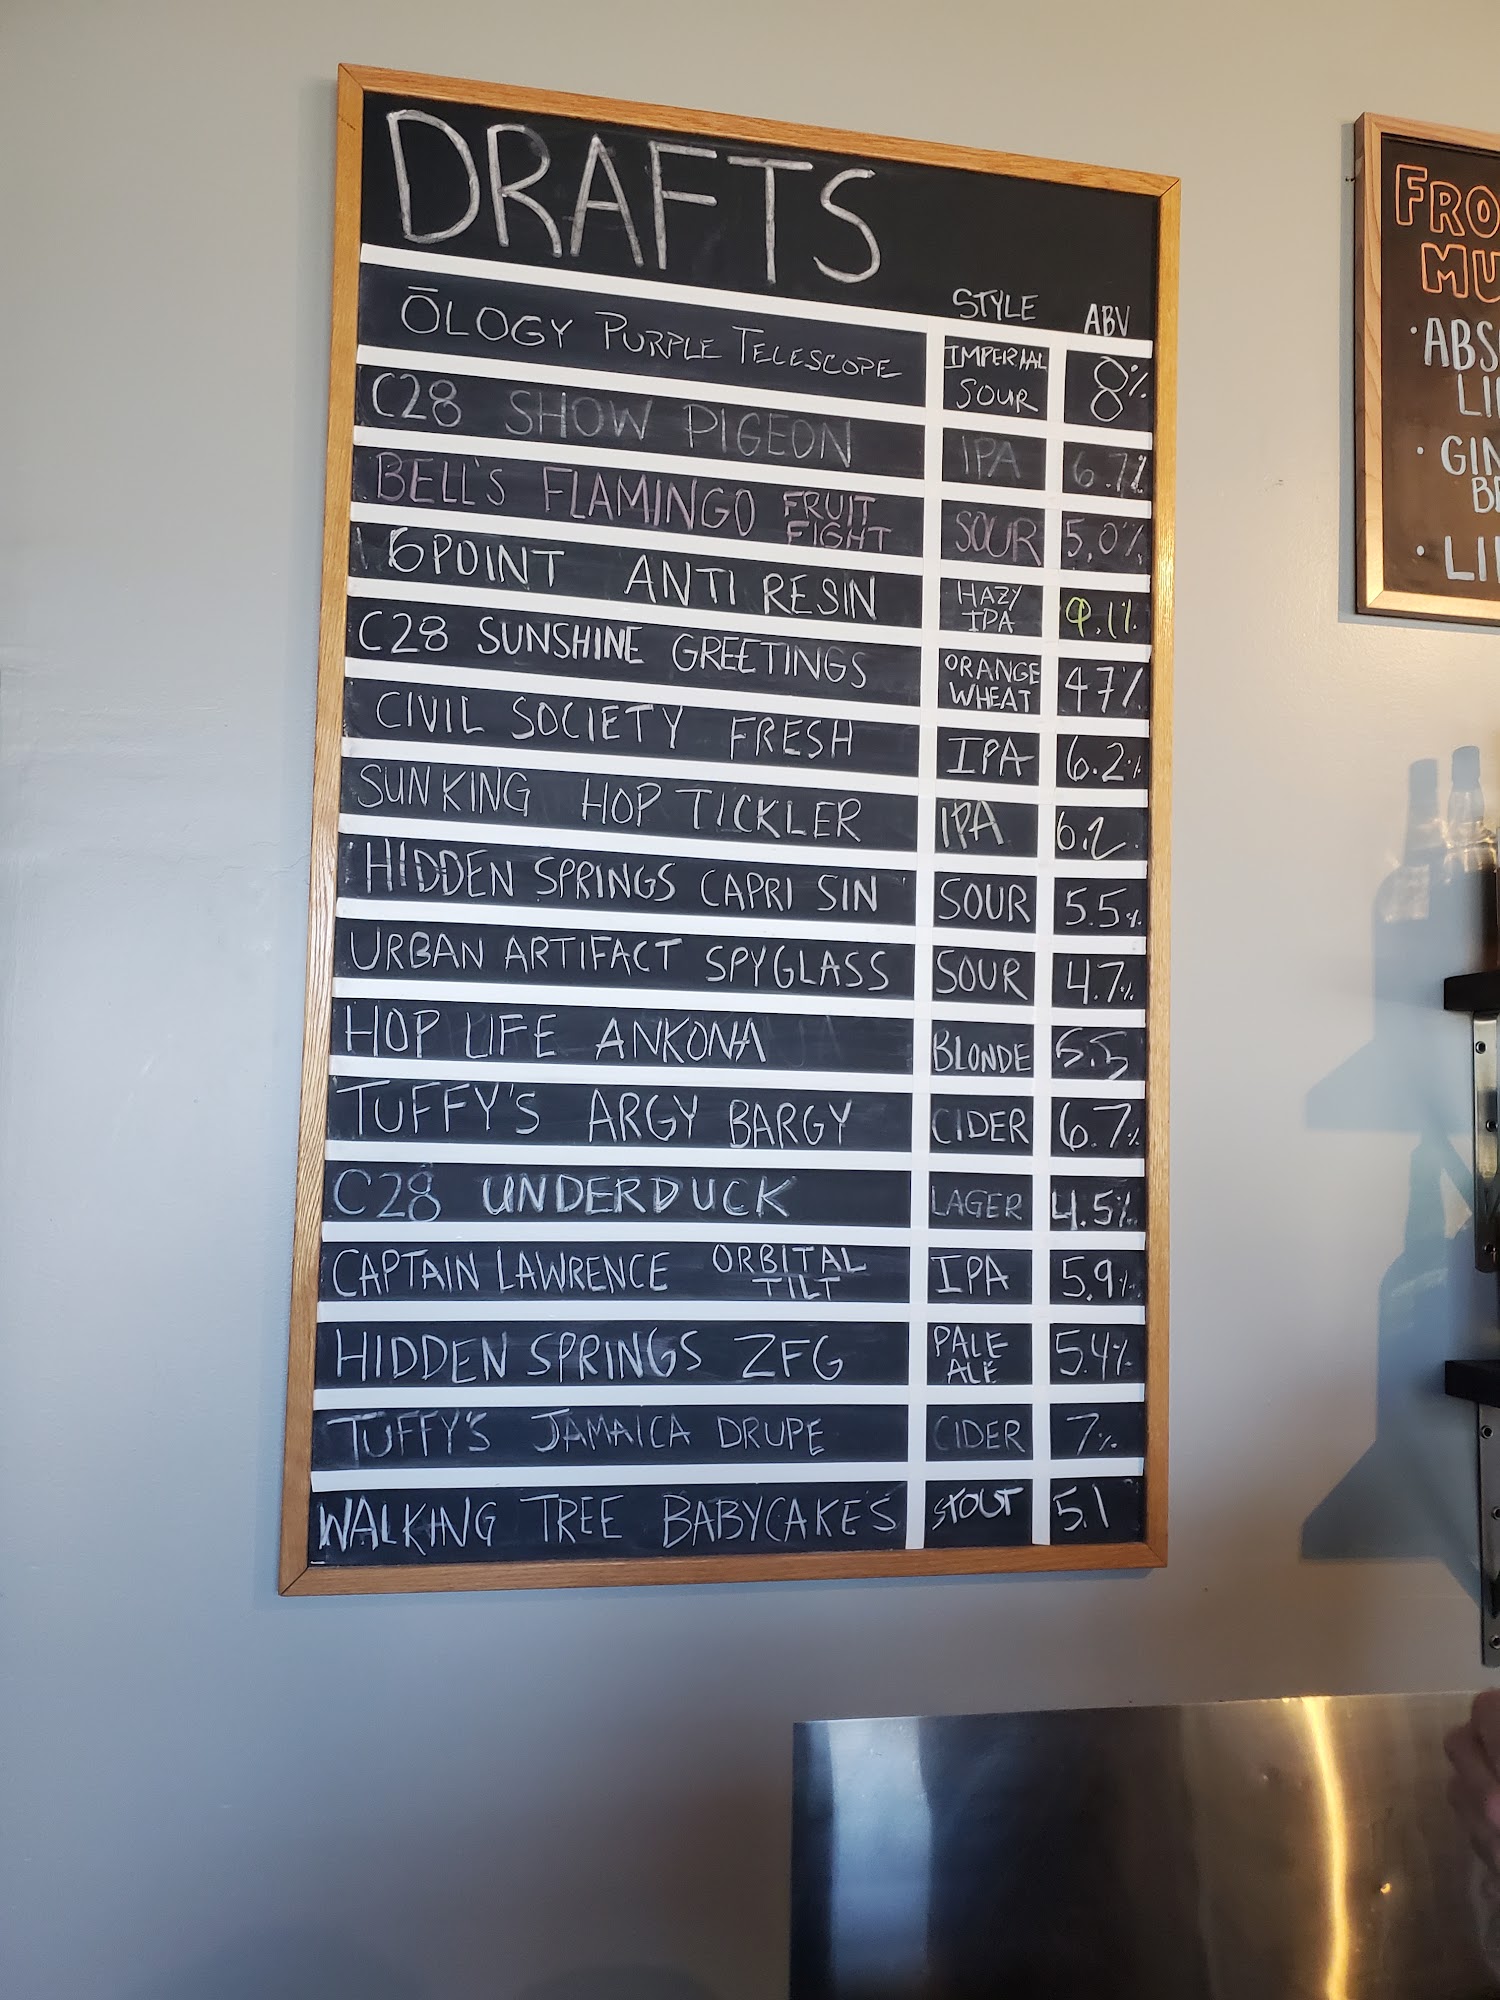 DRAFTS
STYLE ABV
ŌLOGY PURPLE TELESCOPE IMPERIAL SOUR 8%
C28 SHOW PIGEON IPA 6.7%
BELL'S FLAMINGO FRUIT FIGHT SOUR 5.0%
6POINT ANTI RESIN HAZY IPA 9.1%
C28 SUNSHINE GREETINGS ORANGE WHEAT 4.7%
CIVIL SOCIETY FRESH IPA 6.2%
SUN KING HOP TICKLER IPA 6.2
HIDDEN SPRINGS CAPRI SIN SOUR 5.5%
URBAN ARTIFACT SPYGLASS SOUR 4.7%
HOP LIFE ANKONA BLONDE 5.5
TUFFY'S ARGY BARGY CIDER 6.7%
C28 UNDERDUCK LAGER 4.5%
CAPTAIN LAWRENCE ORBITAL TILT IPA 5.9%
HIDDEN SPRINGS ZFG PALE ALE 5.4%
TUFFY'S JAMAICA DRUPE CIDER 7%
WALKING TREE BABYCAKES STOUT 5.1
FRO
MU
• ABS
LI
• GIN
BE
• LI